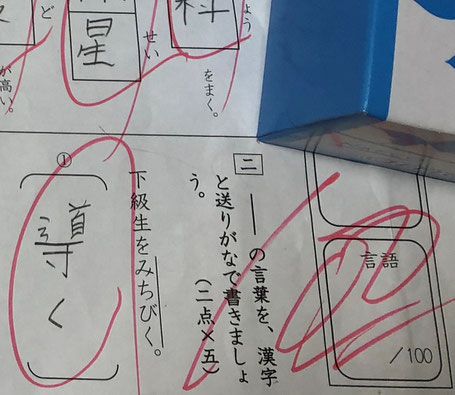 料
ょう
をまく。
星
せい
ど
が高い。
言語
100
/100
二 の言葉を、漢字
と送りがなで書きましょ
う。 (二点×五)
下級生をみちびく。
①
導く